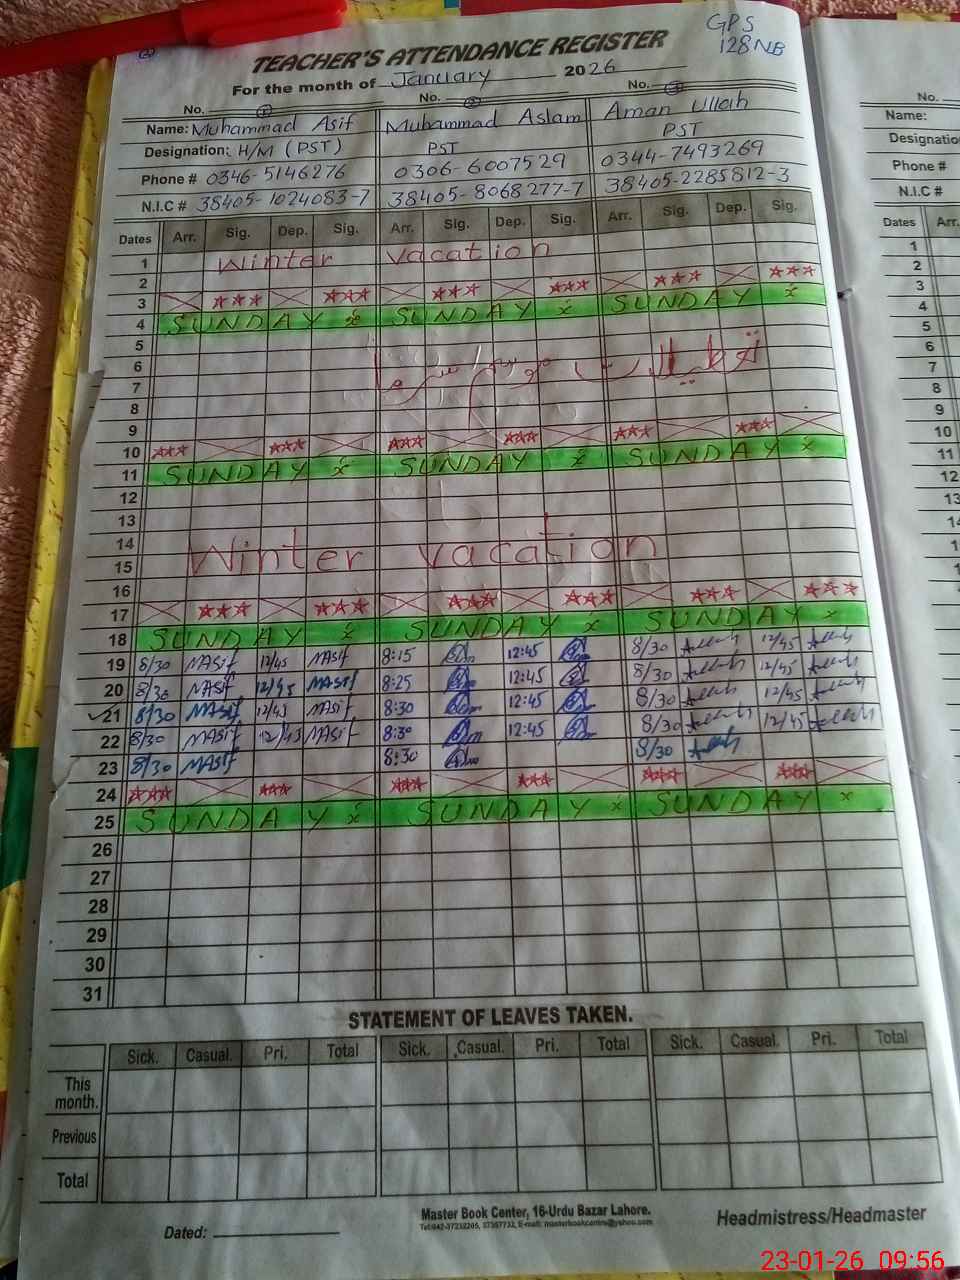 GPS
128 NB
TEACHER'S ATTENDANCE REGISTER
For the month of January 2026
No. 1 No. 2 No. 3
Name: Muhammad Asif Muhammad Aslam Aman Ullah
Designation: H/M (PST) PST PST
Phone # 0346-5146276 0306-6007529 0344-7493269
N.I.C # 38405-1024083-7 38405-8068277-7 38405-2285812-3
Dates Arr. Sig. Dep. Sig. Arr. Sig. Dep. Sig. Arr. Sig. Dep. Sig.
1 Winter vacation
2
3 *** *** *** *** *** ***
4 SUNDAY SUNDAY SUNDAY
5
6 تعطیلات موسم سرما
7
8
9
10 *** *** *** *** *** ***
11 SUNDAY SUNDAY SUNDAY
12
13
14 Winter vacation
15
16
17 *** *** *** *** *** ***
18 SUNDAY SUNDAY SUNDAY
19 8/30 MASif 12/45 MASif 8:15 12:45 8/30 12/45
20 8/30 MASif 12/45 MASif 8:25 12:45 8/30 12/45
21 8/30 MASif 12/45 MASif 8:30 12:45 8/30 12/45
22 8/30 MASif 12/45 MASif 8:30 12:45 8/30 12/45
23 8/30 MASif 8:30 8/30
24 *** *** *** *** *** ***
25 SUNDAY SUNDAY SUNDAY
26
27
28
29
30
31
STATEMENT OF LEAVES TAKEN.
Sick. Casual. Pri. Total Sick. Casual. Pri. Total Sick. Casual. Pri. Total
This month.
Previous
Total
Master Book Center, 16-Urdu Bazar Lahore.
Dated: Headmistress/Headmaster
No.
Name:
Designation
Phone #
N.I.C #
Dates Arr.
1
2
3
4
5
6
7
8
9
10
11
12
13
23-01-26 09:56